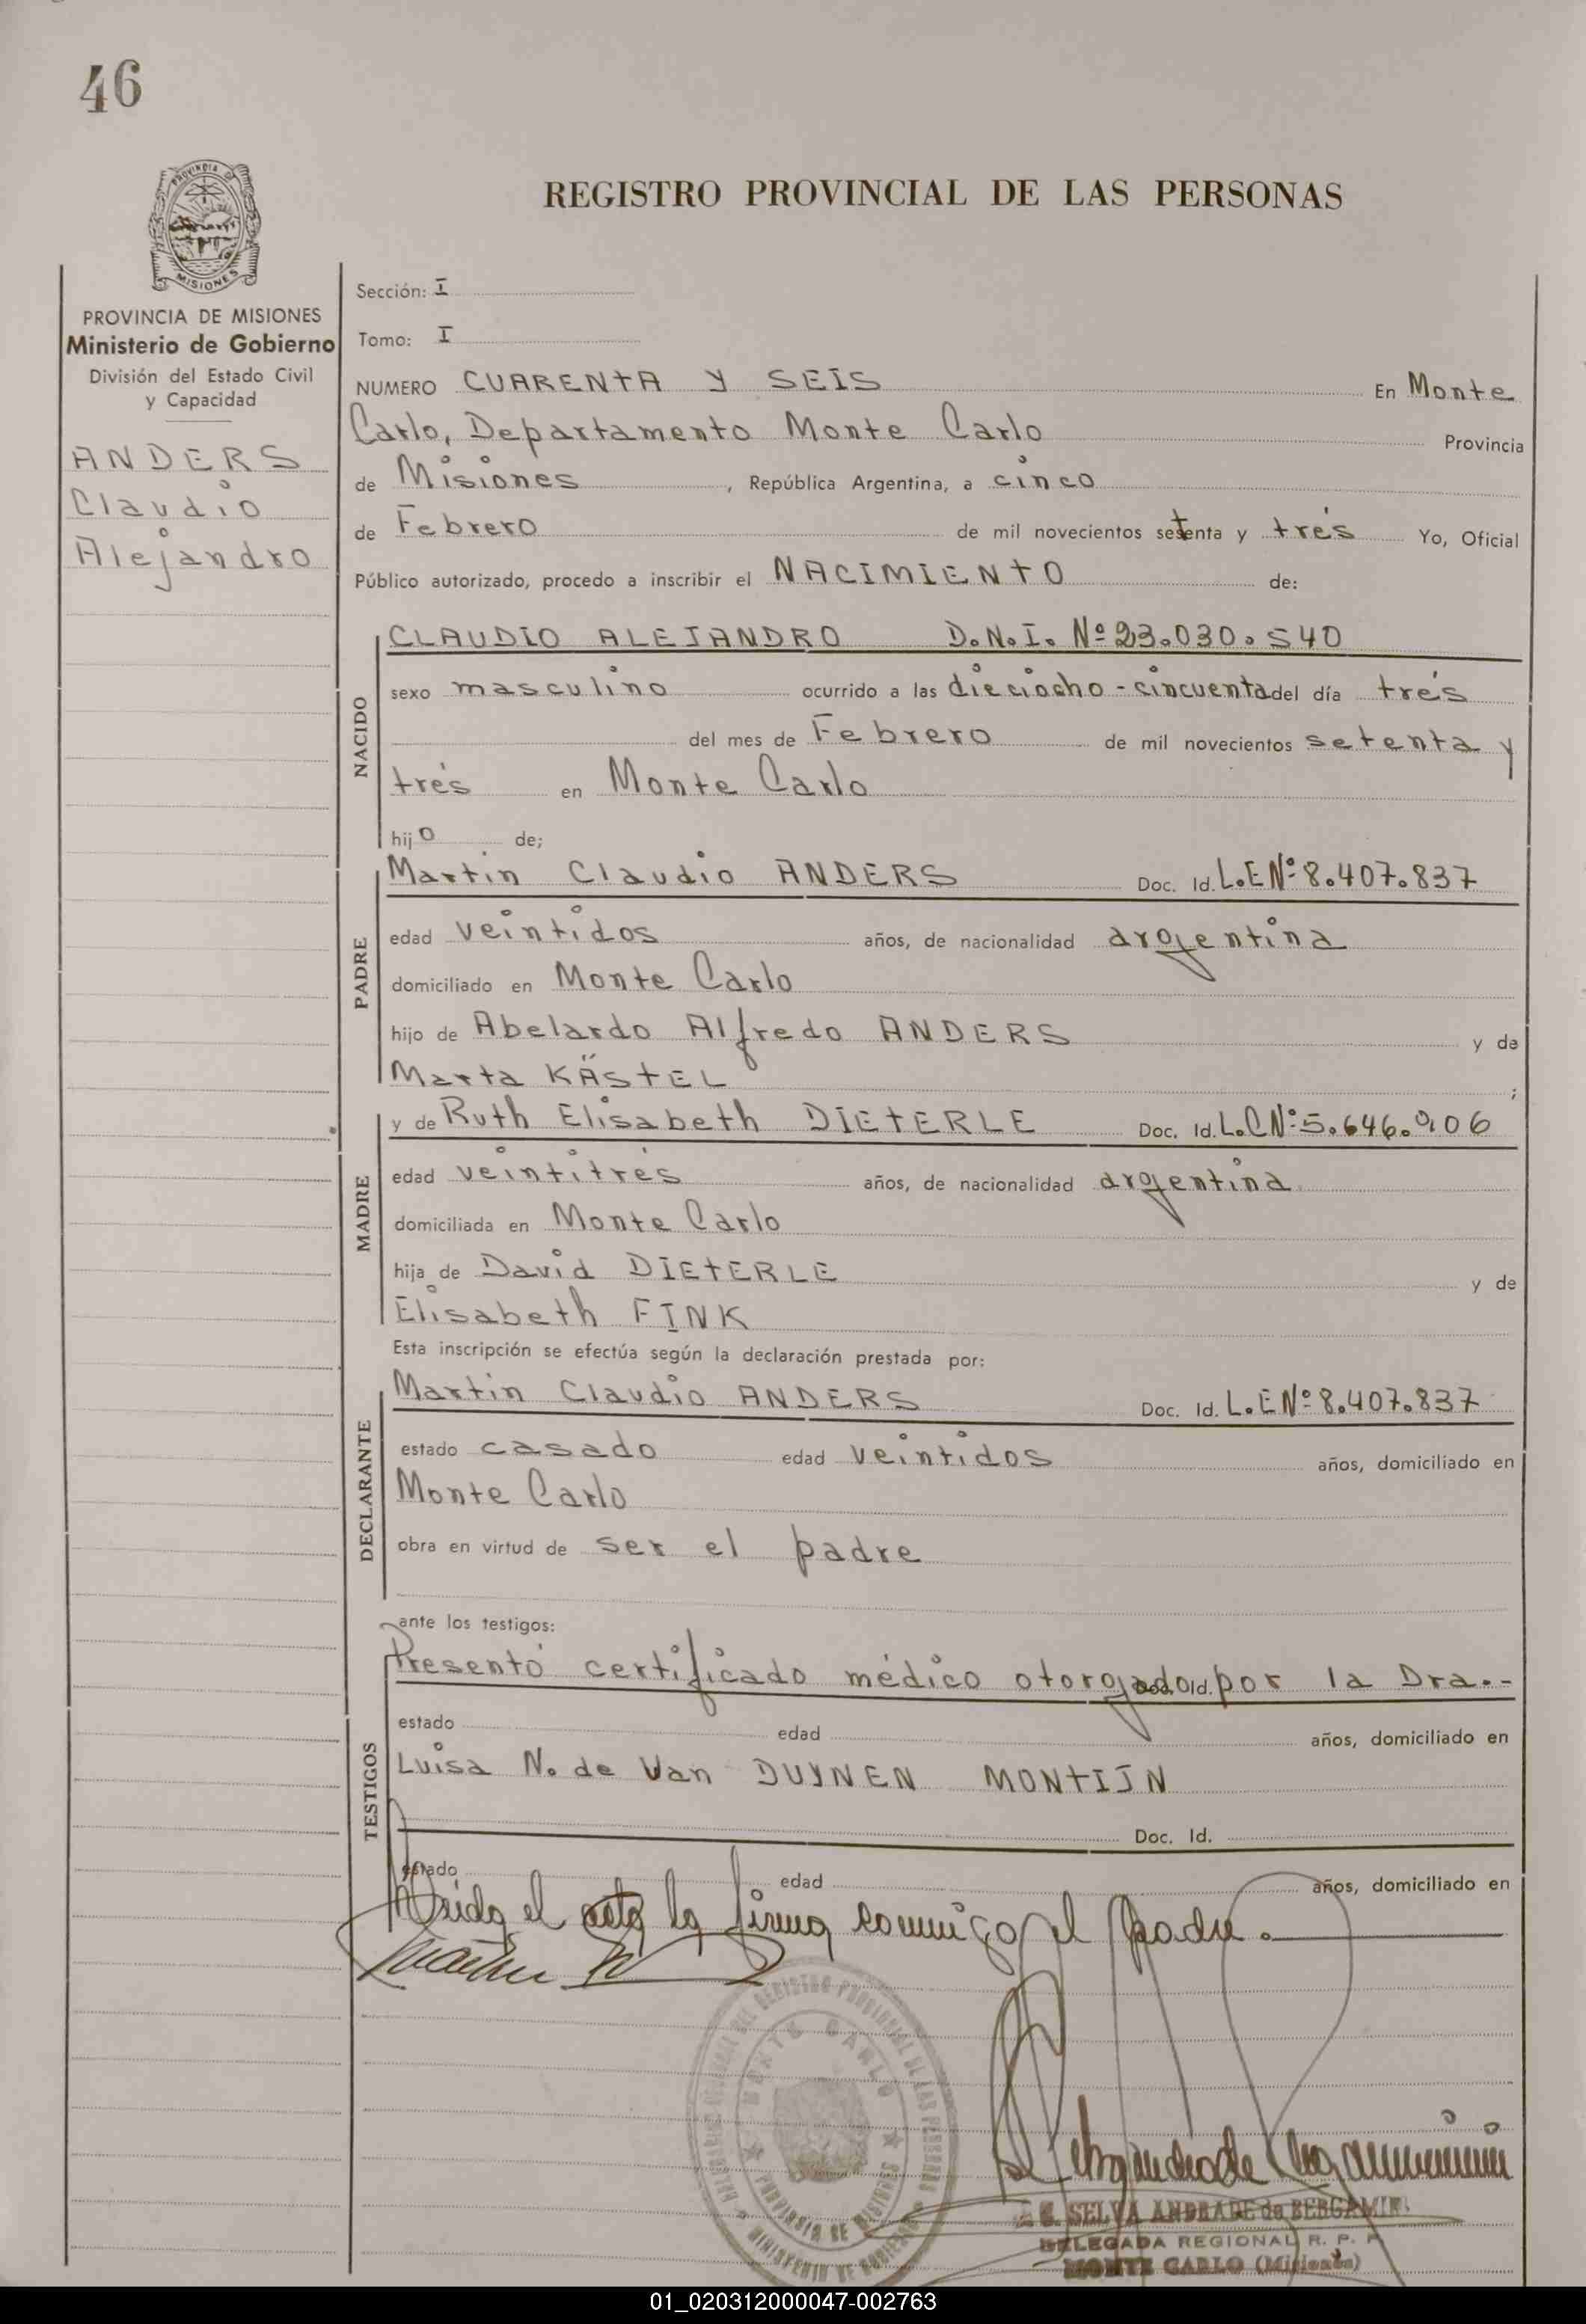 46
PROVINCIA DE MISIONES
Ministerio de Gobierno
División del Estado Civil
y Capacidad
ANDERS
Claudio
Alejandro
REGISTRO PROVINCIAL DE LAS PERSONAS
Sección: I
Tomo: I
NUMERO CUARENTA Y SEIS En Monte
Carlo, Departamento Monte Carlo Provincia
de Misiones, República Argentina, a cinco
de Febrero de mil novecientos setenta y trés Yo, Oficial
Público autorizado, procedo a inscribir el NACIMIENTO de:
NACIDO
CLAUDIO ALEJANDRO D.N.I. Nº 23.030.540
sexo masculino ocurrido a las dieciocho - cincuenta del día trés
del mes de Febrero de mil novecientos setenta y
trés en Monte Carlo
hijo de;
PADRE
Martin Claudio ANDERS Doc. Id. L.E Nº 8.407.837
edad veintidos años, de nacionalidad argentina
domiciliado en Monte Carlo
hijo de Abelardo Alfredo ANDERS y de
Marta KÄSTEL ;
MADRE
y de Ruth Elisabeth DIETERLE Doc. Id. L.C Nº 5.646.906
edad veintitrés años, de nacionalidad argentina
domiciliada en Monte Carlo
hija de David DIETERLE y de
Elisabeth FINK
Esta inscripción se efectúa según la declaración prestada por:
DECLARANTE
Martin Claudio ANDERS Doc. Id. L.E Nº 8.407.837
estado casado edad veintidos años, domiciliado en
Monte Carlo
obra en virtud de ser el padre
ante los testigos:
TESTIGOS
Presentó certificado médico otorgado por la Dra.-
estado edad años, domiciliado en
Luisa N. de Van DUYNEN MONTIJN
Doc. Id.
estado edad años, domiciliado en
leida el acta la firma conmigo el padre.
MONTE CARLO
PROVINCIA DE MISIONES
MINISTERIO DE GOBIERNO
S. SELVA ANDRADE de BERGAMIN
DELEGADA REGIONAL R. P. P.
MONTE CARLO (Misiones)
01_020312000047-002763